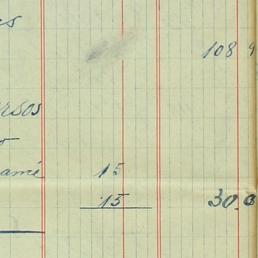 es
108 9
rsos
amé 15
15 30,0